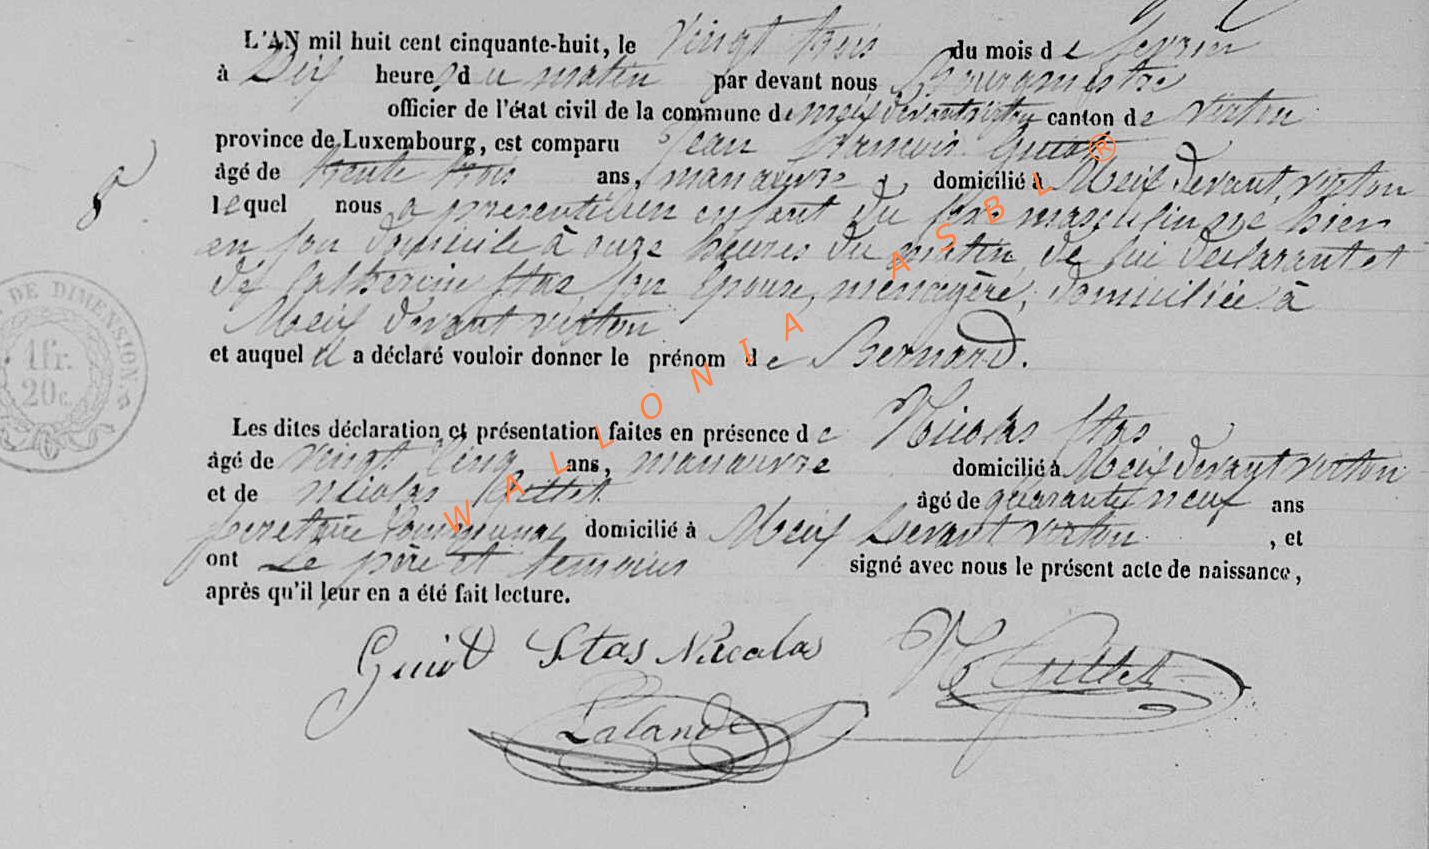 L'AN mil huit cent cinquante-huit, le vingt trois du mois de fevrier
à Dix heures du matin par devant nous Bourgmestre
officier de l'état civil de la commune de meix devant virton canton de virton
province de Luxembourg, est comparu Jean francois Guiot
âgé de trente trois ans, manœuvre domicilié à Meix devant virton
lequel nous a presenté un enfant du sexe masculin né hier
en son domicile à onze heures du matin, de lui declarant et
de Catherine Stas, son épouse, menagère, domiciliée à
Meix devant virton
et auquel il a déclaré vouloir donner le prénom de Bernard.
Les dites déclaration et présentation faites en présence de Nicolas Stas
âgé de vingt cinq ans, manœuvre domicilié à Meix devant virton
et de nicolas Gillet âgé de quarante neuf ans
secretaire Communal domicilié à Meix devant virton, et
ont Le père et temoins signé avec nous le présent acte de naissance,
après qu'il leur en a été fait lecture.
8
DE DIMENSION
1fr.
20c.
Guiot Stas Nicolas N Gillet
Lalande
WALLONIA ASBL ®